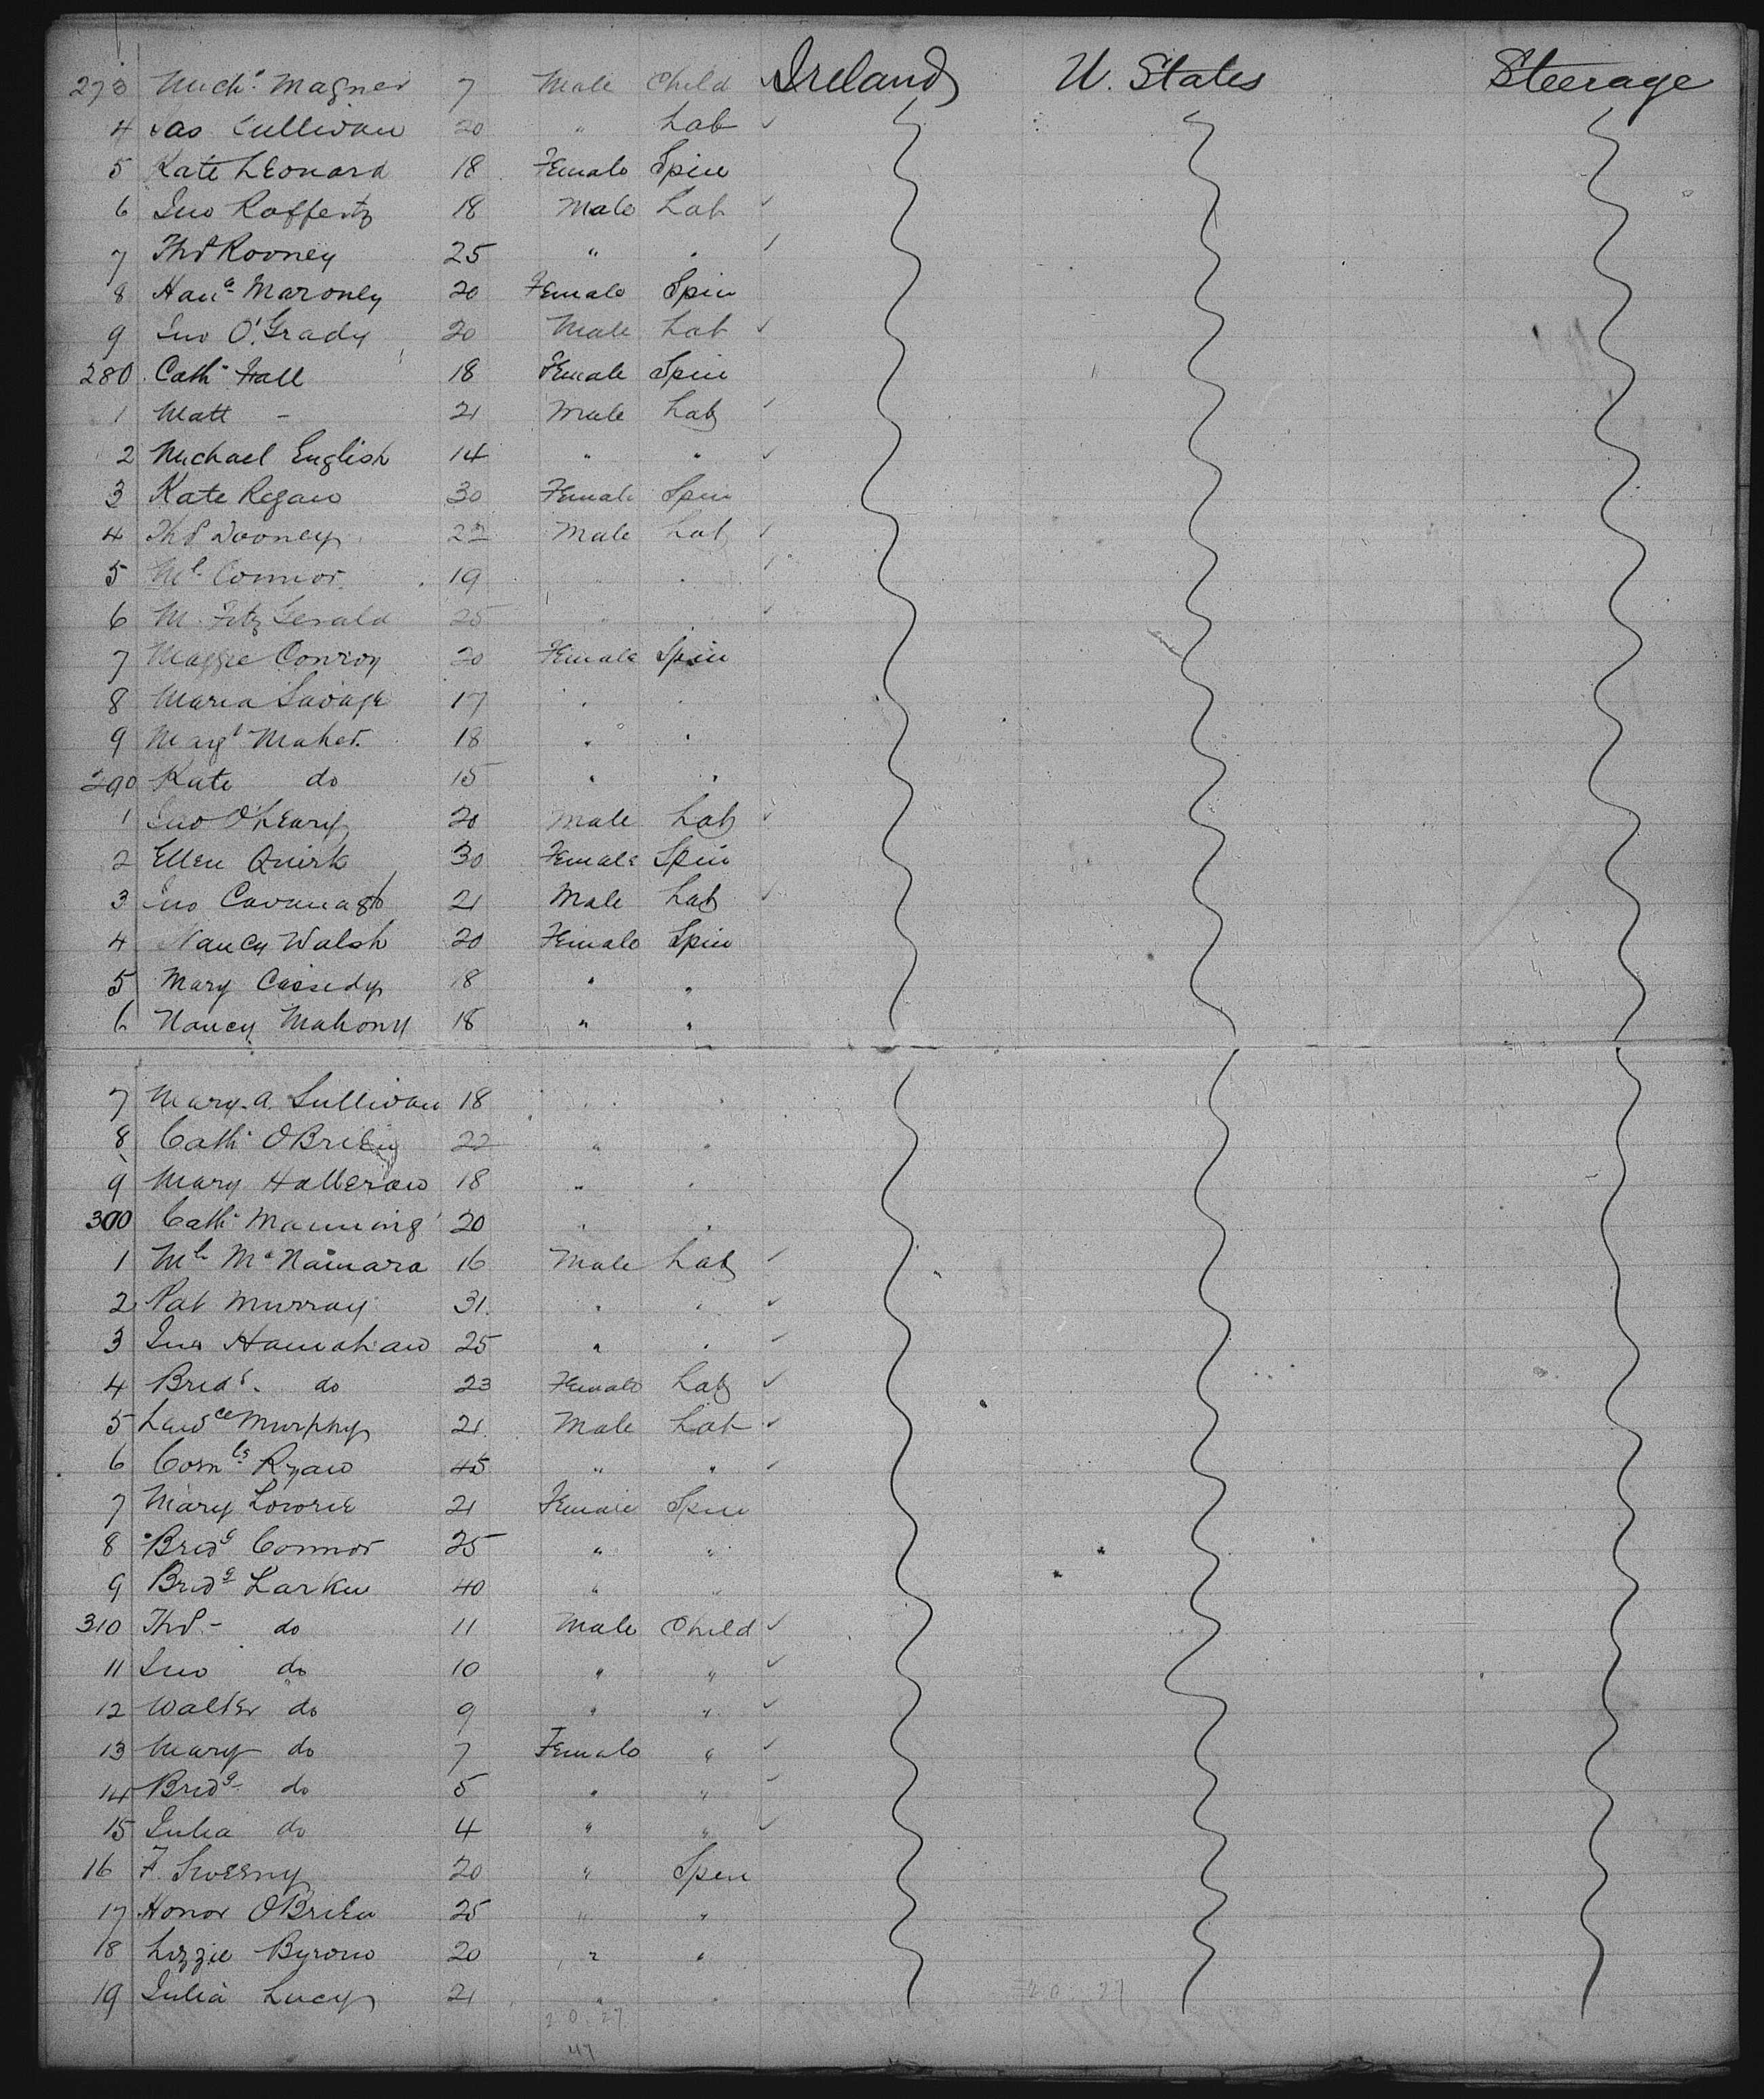 273 Mich. Magner 7 Male Child ✓ Ireland U. States Steerage
4 Jas Sullivan 20 " Lab ✓
5 Kate Leonard 18 Female Spin
6 Jno Rafferty 18 Male Lab ✓
7 Thos Rooney 25 " " ✓
8 Hana Maroney 20 Female Spin
9 Jno O'Grady 20 Male Lab ✓
280 Cath. Hall 18 Female Spin
1 Matt - 21 Male Lab ✓
2 Michael English 14 " " ✓
3 Kate Regan 30 Female Spin
4 Thos Dooney 22 Male Lab ✓
5 Ml Connor 19 " " ✓
6 M. Fitz Gerald 25 " " ✓
7 Maggie Conroy 20 Female Spin
8 Maria Savage 17 " "
9 Margt Maher 18 " "
290 Kate do 15 " "
1 Jno O'Leary 20 Male Lab ✓
2 Ellen Quirk 30 Female Spin
3 Jno Cavanagh 21 Male Lab ✓
4 Nancy Walsh 20 Female Spin
5 Mary Cassedy 18 " "
6 Nancy Mahony 18 " "
7 Mary. A. Sullivan 18 " "
8 Cath. O'Brien 22 " "
9 Mary Halleran 18 " "
300 Cath. Manning 20 " "
1 Ml McNamara 16 Male Lab ✓
2 Pat Murray 31 " " ✓
3 Jno Hanrahan 25 " " ✓
4 Bridt. do 23 Female Lab ✓
5 Lawce Murphy 21 Male Lab ✓
6 Cornls Ryan 45 " " ✓
7 Mary Lowrie 21 Female Spin
8 Bridg Connor 25 " "
9 Bridg Larkin 40 " "
310 Thos - do 11 Male Child ✓
11 Jno do 10 " " ✓
12 Walter do 9 " " ✓
13 Mary do 7 Female " ✓
14 Bridg do 5 " " ✓
15 Julia do 4 " " ✓
16 F. Sweeny 20 " Spin
17 Honor O'Brien 25 " "
18 Lizzie Byrone 20 " "
19 Julia Lucy 21 " "
20.27 20.27
47